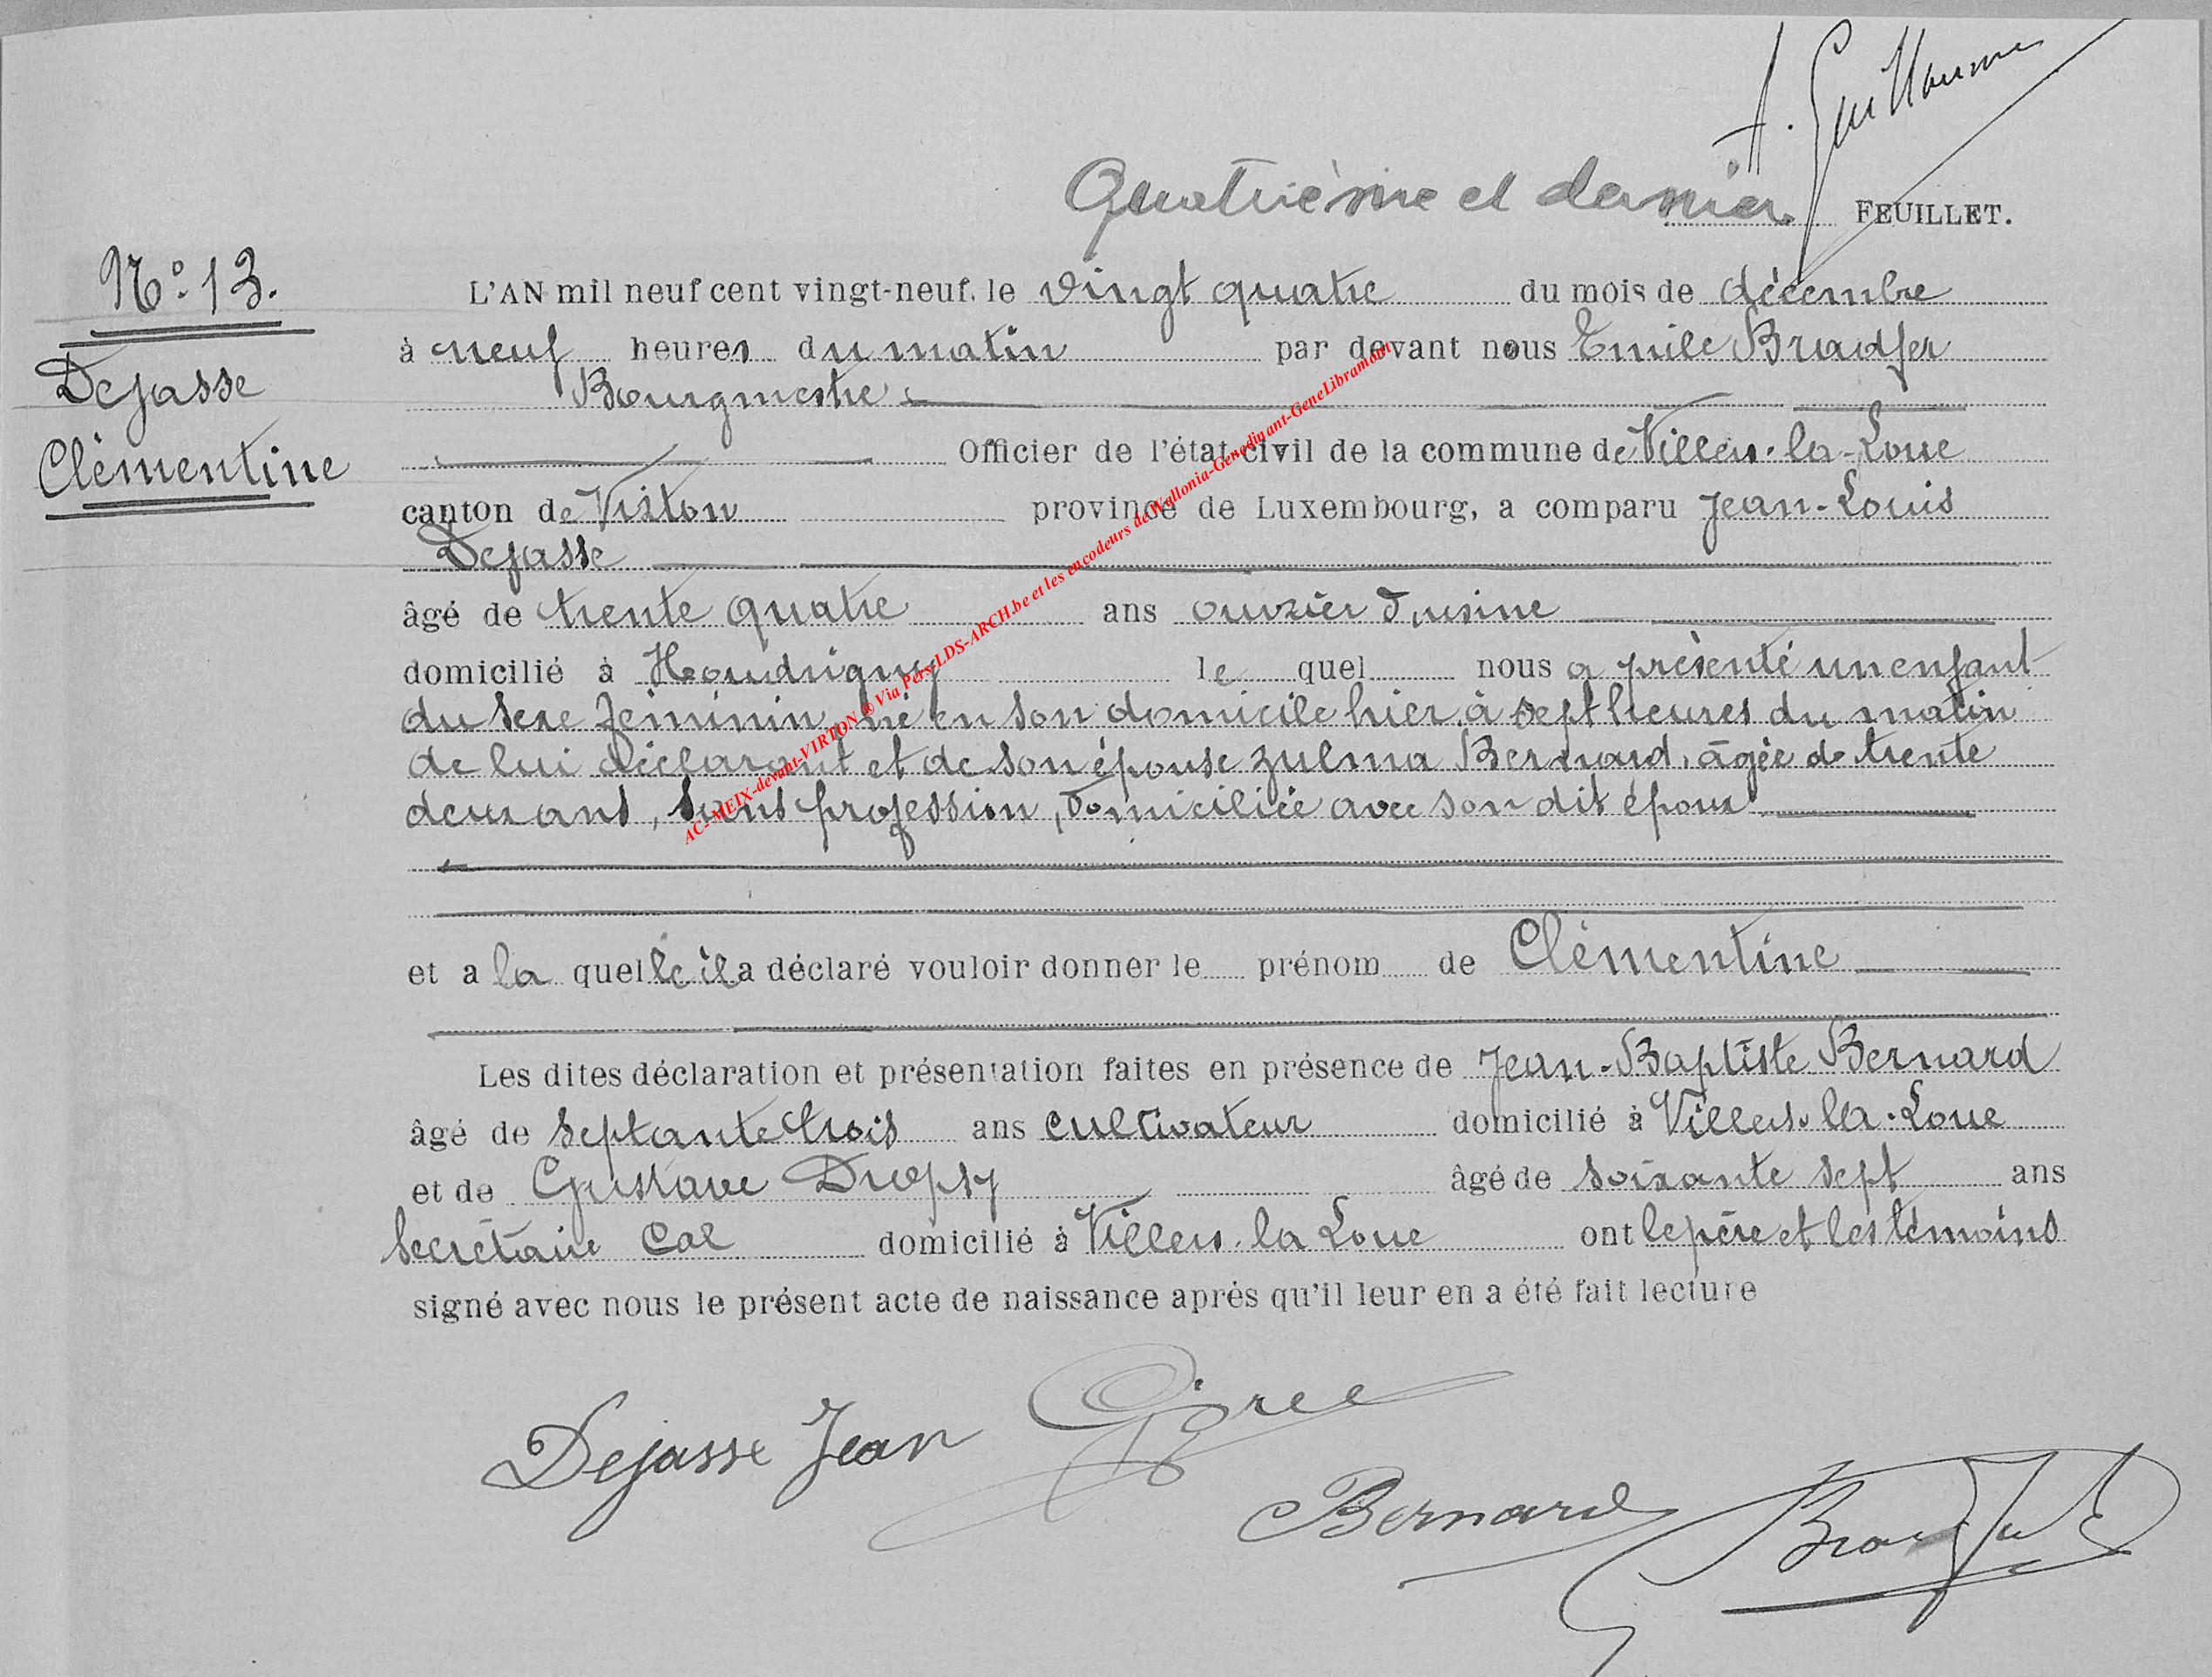 A. Guillaume
Quatrième et dernier FEUILLET.
N° 13.
Dejasse
Clémentine
L'AN mil neuf cent vingt-neuf, le vingt quatre du mois de décembre
à neuf heures du matin par devant nous Emile Bradfer
Bourgmestre
Officier de l'état civil de la commune de Villers-la-Loue
canton de Virton province de Luxembourg, a comparu Jean-Louis
Dejasse
âgé de trente quatre ans ouvrier d'usine
domicilié à Houdrigny le quel nous a présenté un enfant
du sexe féminin, né en son domicile hier à sept heures du matin
de lui déclarant et de son épouse Zulma Bernard, âgée de trente
deux ans, sans profession, domiciliée avec son dit époux
et a la quelle il a déclaré vouloir donner le prénom de Clémentine
Les dites déclaration et présentation faites en présence de Jean-Baptiste Bernard
âgé de septante trois ans cultivateur domicilié à Villers-la-Loue
et de Gustave Dropsy âgé de soixante sept ans
secrétaire Cal domicilié à Villers-la Loue ont le père et les témoins
signé avec nous le présent acte de naissance après qu'il leur en a été fait lecture
Dejasse Jean
Bernard
AC-MEIX-devant-VIRTON @ Via Pers-LDS-ARCH.be et les encodeurs de Wallonia-Genedinant-GeneLibramont